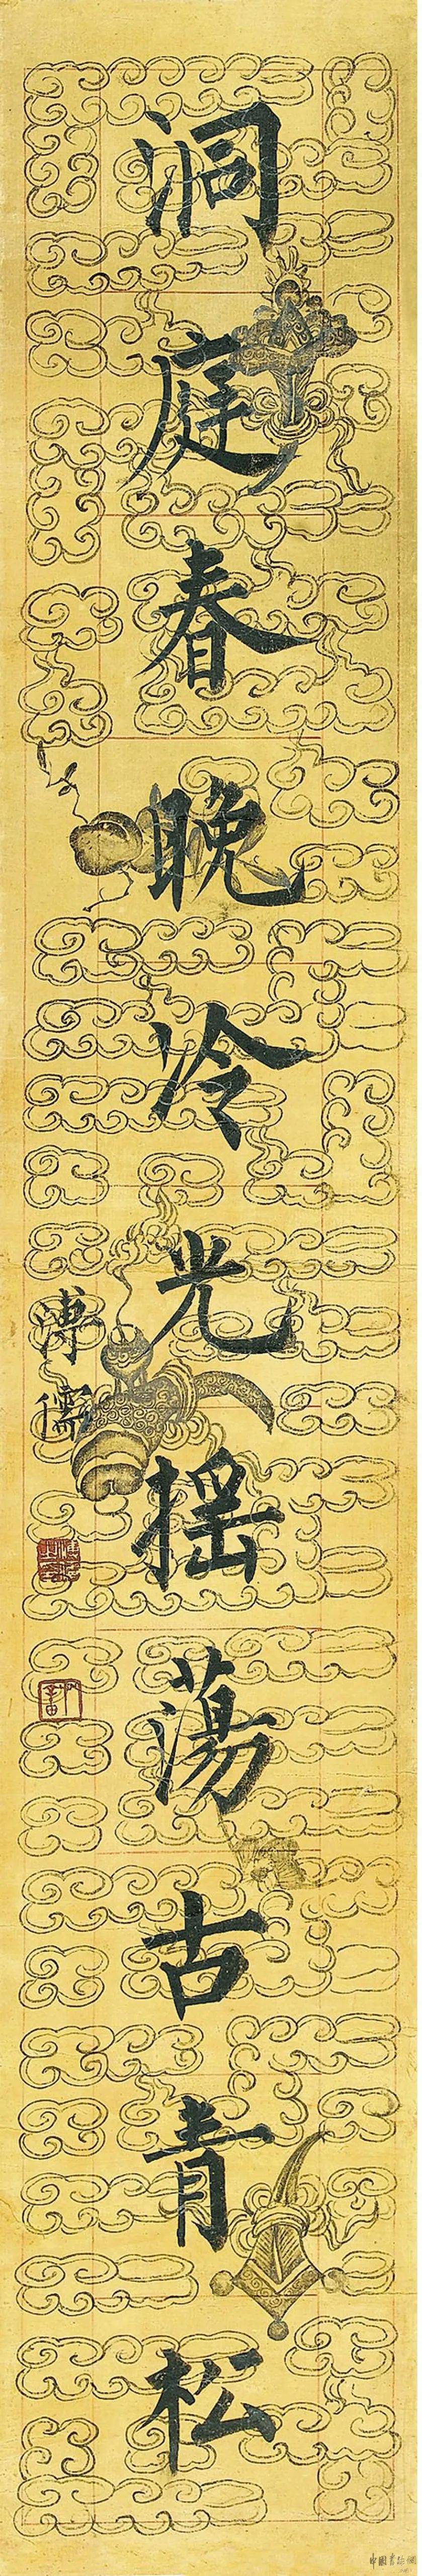 洞庭春晚冷光摇荡古青松
溥儒
中国书法网